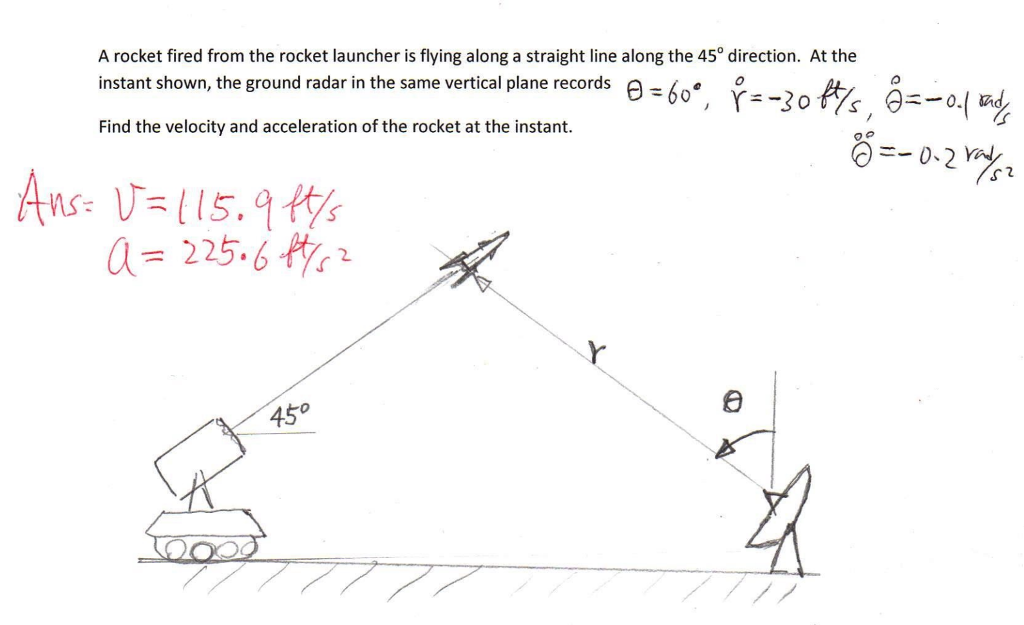 A rocket fired from the rocket launcher is flying along a straight line along the 45° direction. At the
instant shown, the ground radar in the same vertical plane records θ=60°, ṙ=-30 ft/s, θ̇=-0.1 rad/s
θ̈=-0.2 rad/s²
Find the velocity and acceleration of the rocket at the instant.
Ans: V=115.9 ft/s
a=225.6 ft/s²
r
θ
45°